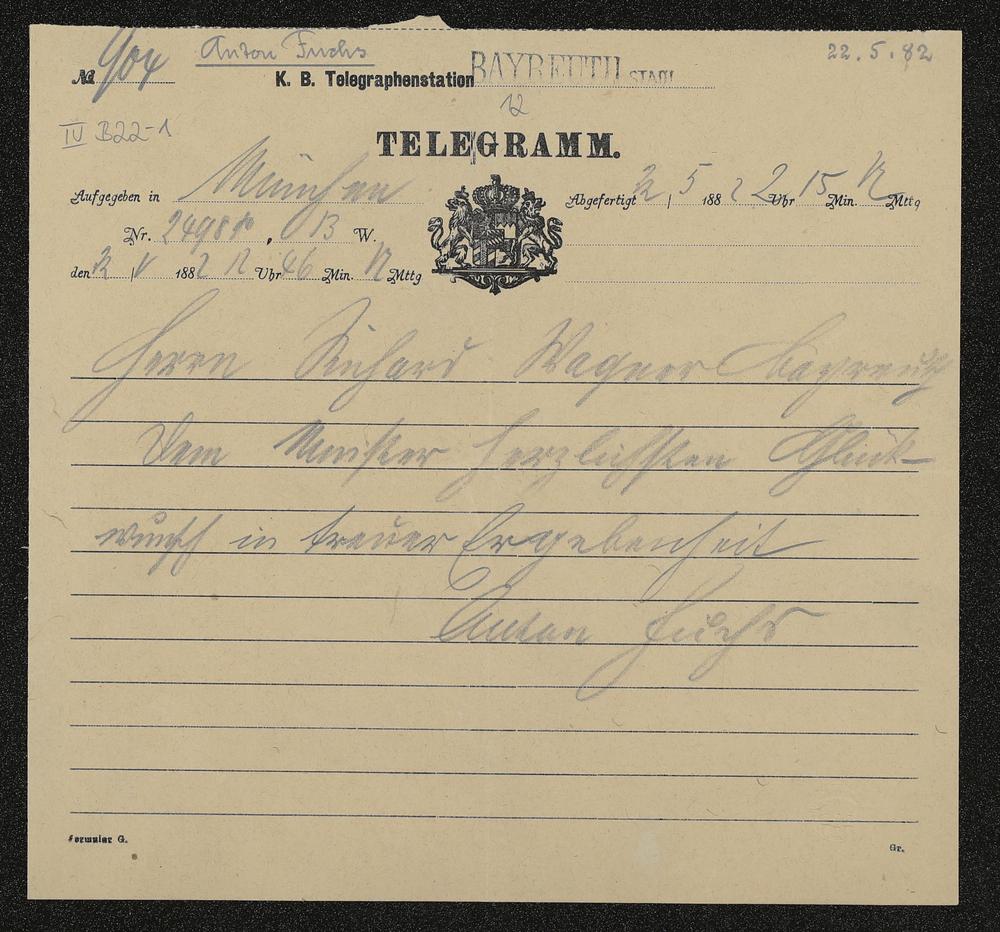 № 904 Anton Fuchs 22.5.82
K. B. Telegraphenstation BAYREUTH STADT
12
IV B22-1
TELEGRAMM.
Aufgegeben in München
Abgefertigt 22 / 5 1882 2 Uhr 15 Min. N Mttg
Nr. 2498 , 13 W.
den 22 / V 1882 12 Uhr 46 Min. N Mttg
Herrn Richard Wagner Bayreuth
Dem Meister herzlichsten Glück-
wunsch in treuer Ergebenheit
Anton Fuchs
Formular G.
Gr.